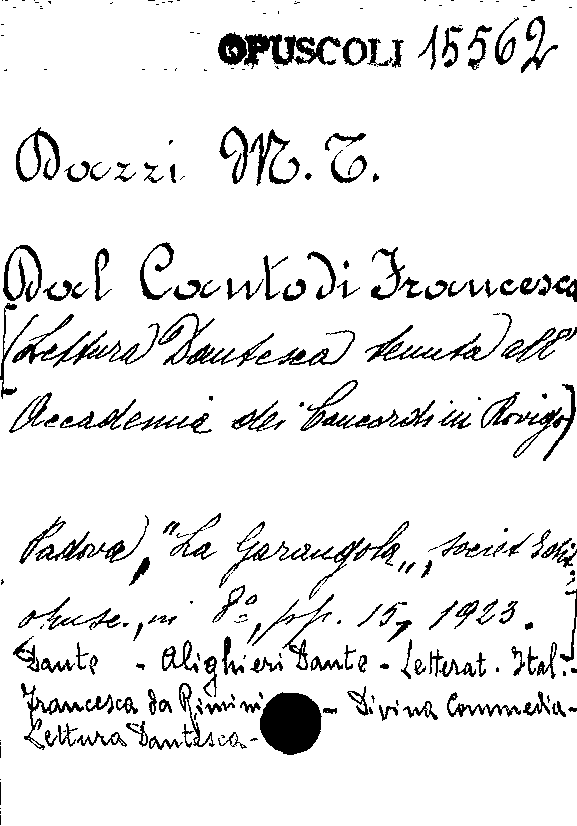 OPUSCOLI 15562
Dazzi M. T.
Dal Canto di Francesca
(Lettura Dantesca tenuta all'
Accademia dei Concordi in Rovigo)
Padova, "La Garangola", societ Edit.
opusc., in 8º, pp. 15, 1923.
Dante - Alighieri Dante - Letterat. Ital. -
Francesca da Rimini - Divina Commedia -
Lettura Dantesca -